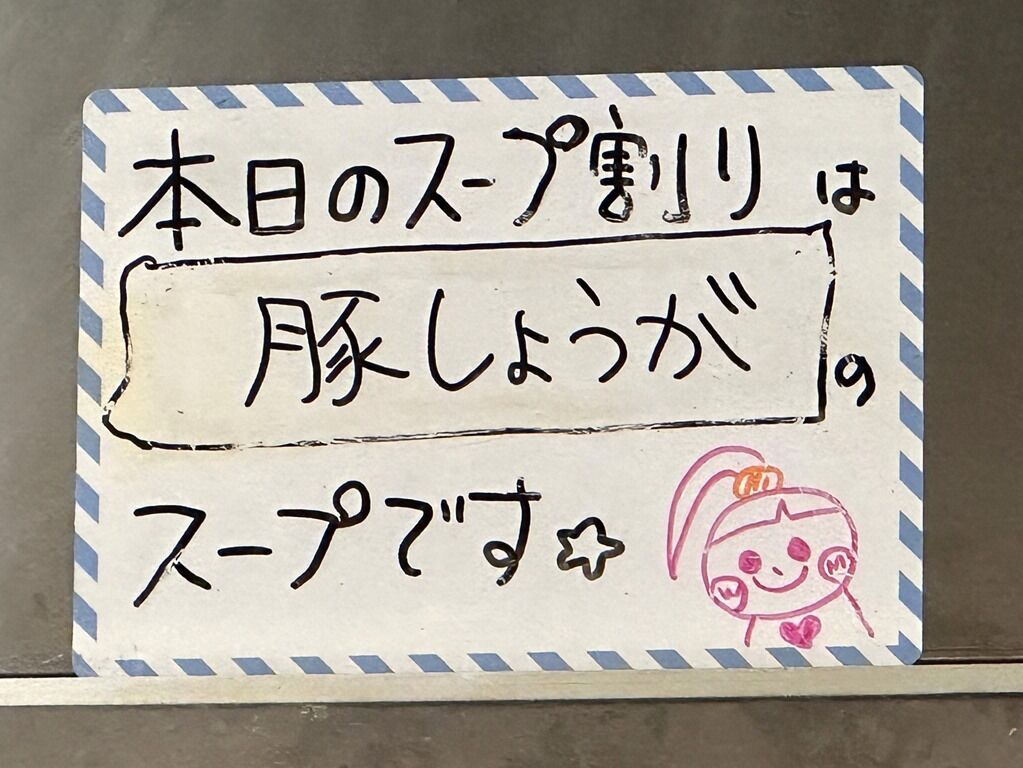 本日のスープ割りは
豚しょうがの
スープです☆
W M